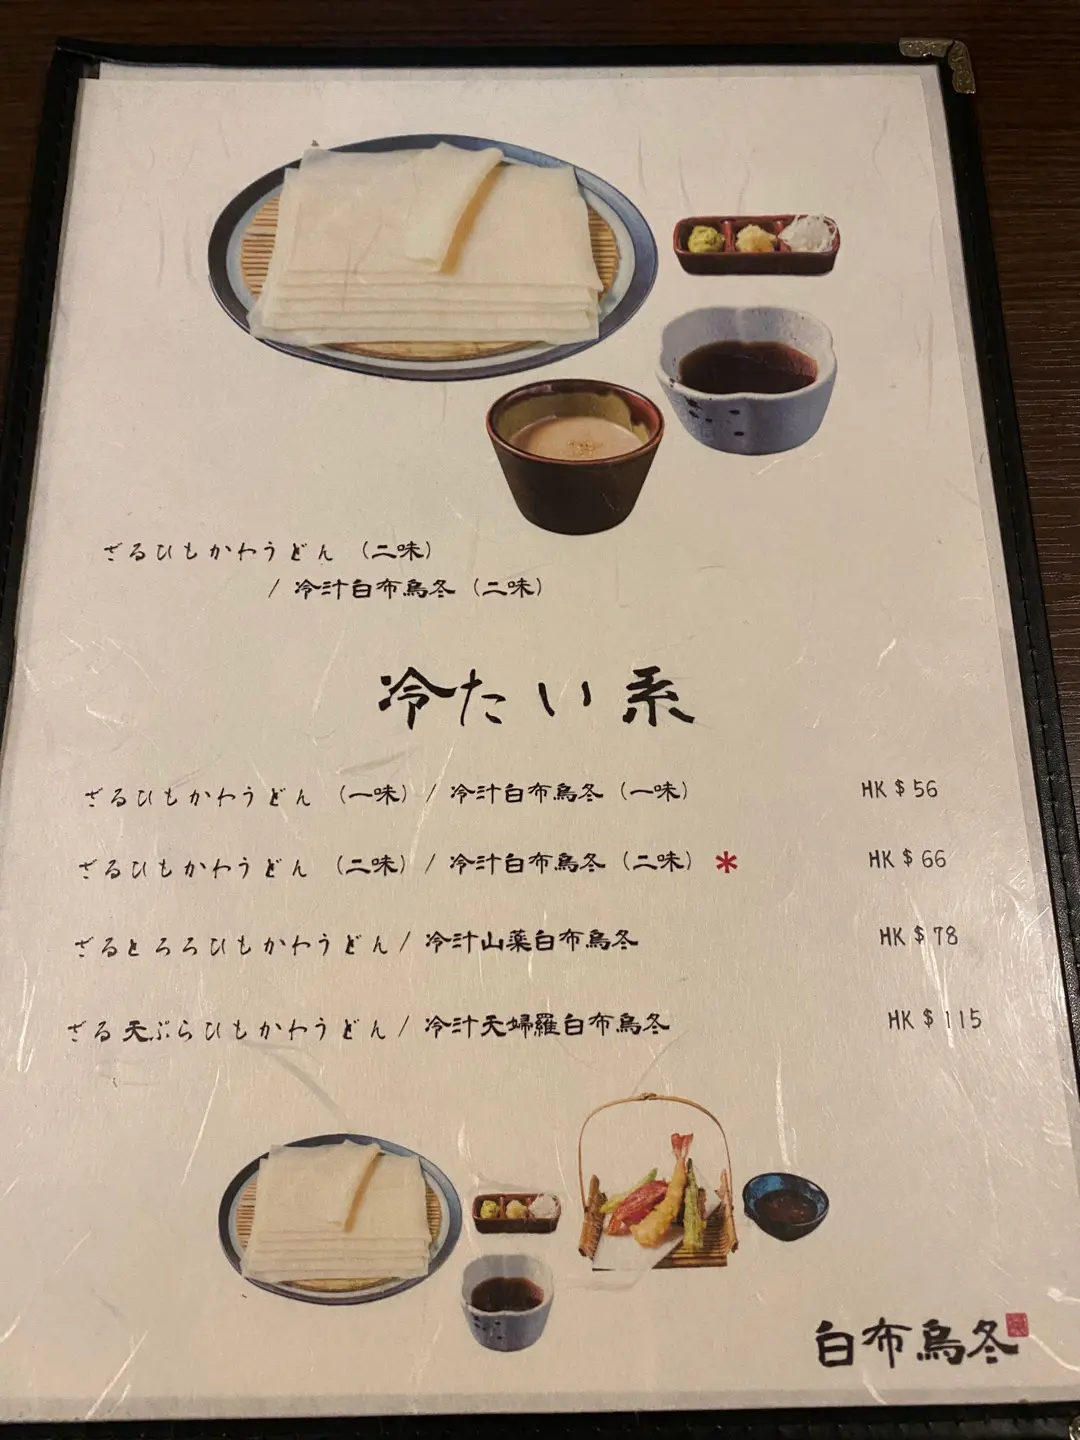 ざるひもかわうどん（二味）
/ 冷汁白布烏冬（二味）
冷たい系
ざるひもかわうどん（一味）/ 冷汁白布烏冬（一味） HK$56
ざるひもかわうどん（二味）/ 冷汁白布烏冬（二味）* HK$66
ざるとろろひもかわうどん / 冷汁山薬白布烏冬 HK$78
ざる天ぷらひもかわうどん / 冷汁天婦羅白布烏冬 HK$115
白布烏冬